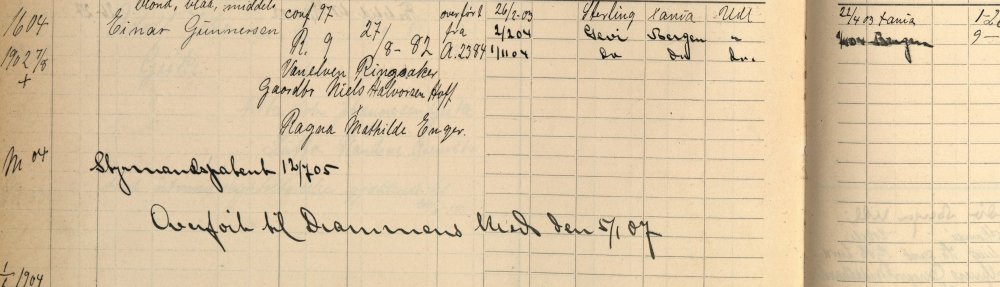 blond, blaa, middels
1604 Einar Gunnersen conf 97 27/8-82 overført 26/2-03 Sterling Tania Udl 22/4 03 Tania
1902 7/8 R. 9 fra 2/2 04 Bergen " Bergen 9
+ Vanelven Ringsaker A. 2384 1/11 04 do do do.
Gaardbr Niels Halvorsen Hoff
Ragna Mathilde Enger.
M 04 Styrmandspatent 12/7 05
Overført til Drammens den 5/1 07
1904